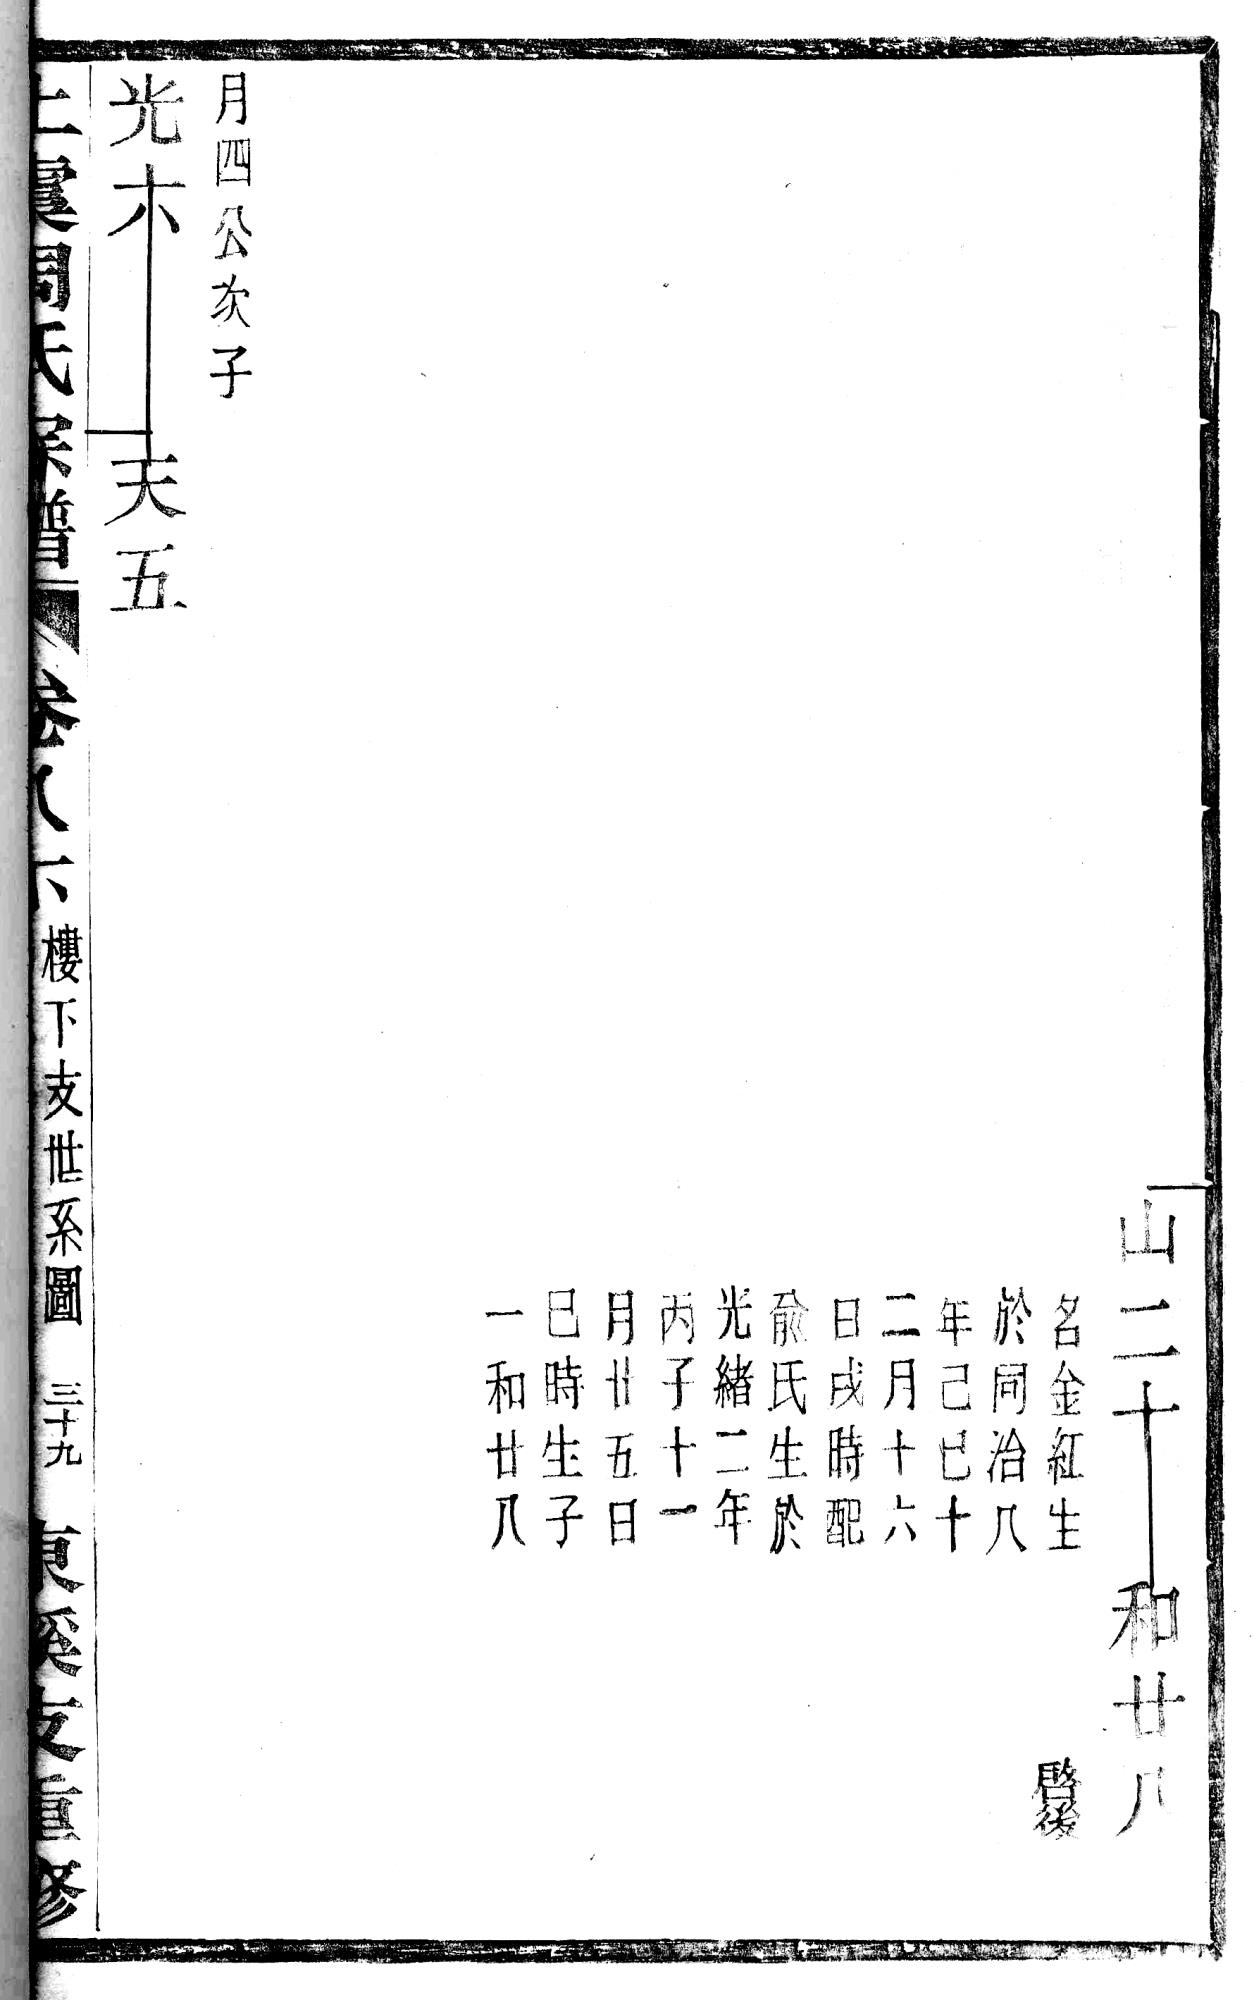 山二十
和廿八
啓後
名金紅生
於同治八
年己巳十
二月十六
日戌時配
俞氏生於
光緒二年
丙子十一
月廿五日
巳時生子
一和廿八
月四公次子
光六
天五
上虞周氏宗譜
卷八下
樓下支世系圖
三十九
東溪支重修